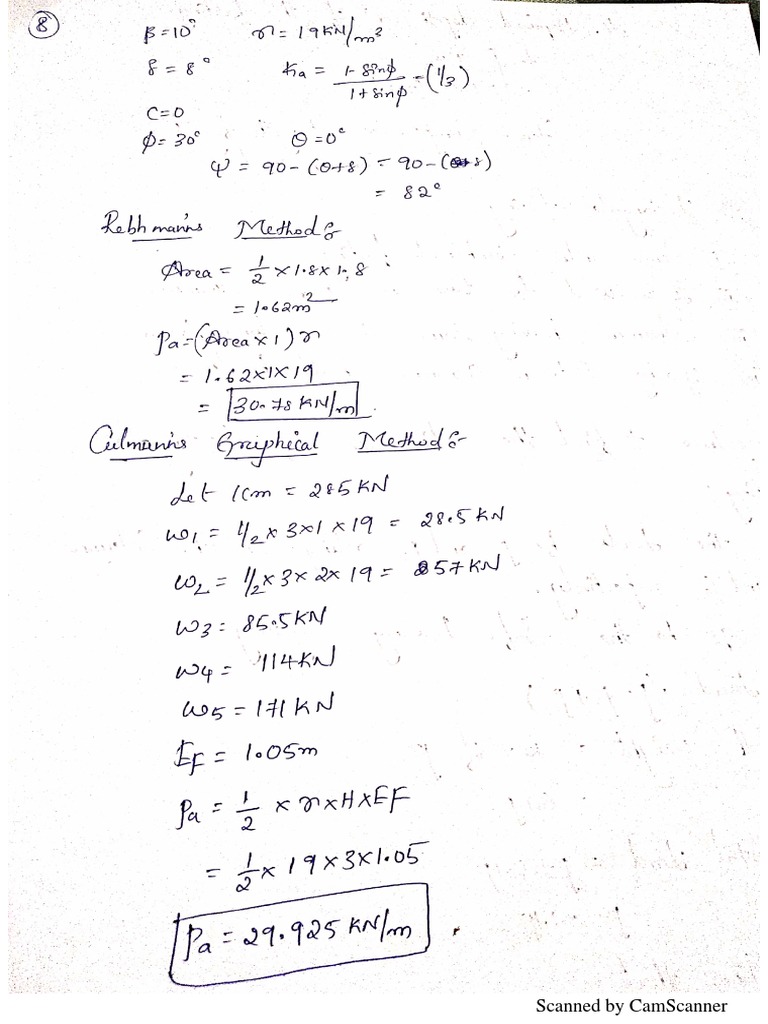 8
β=10° γ=19KN/m³
δ = 8° Ka = (1-sinφ)/(1+sinφ) = (1/3)
C=0
φ= 30° θ=0°
ψ = 90-(θ+δ) = 90-(8)
= 82°
Rebhmann's Method:
Area = 1/2 ×1.8×1.8
= 1.62m²
Pa=(Area×1)γ
= 1.62×1×19
= 30.78 KN/m
Culmann's Graphical Method:
Let 1cm = 285KN
W1 = 1/2×3×1×19 = 28.5KN
W2 = 1/2×3×2×19 = 57KN
W3 = 85.5KN
W4 = 114KN
W5 = 171KN
EF = 1.05m
Pa = 1/2 × γ×H×EF
= 1/2 × 19×3×1.05
Pa = 29.925 KN/m
Scanned by CamScanner